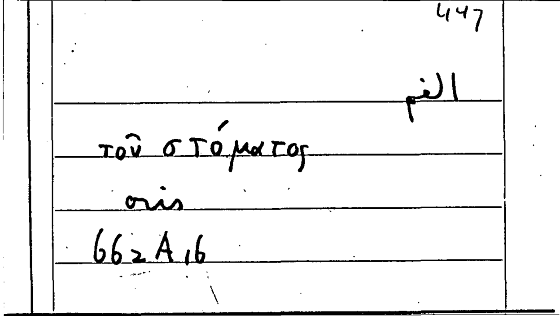 447
الفم
τοῦ στόματος
oris
662A,6